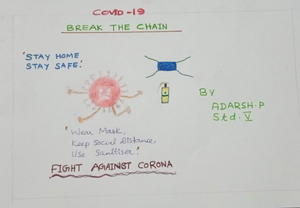 COVID-19
BREAK THE CHAIN
"STAY HOME
STAY SAFE!"
By
ADARSH.P
Std. V
"Wear Mask,
Keep Social Distance,
Use Sanitiser!"
FIGHT AGAINST CORONA